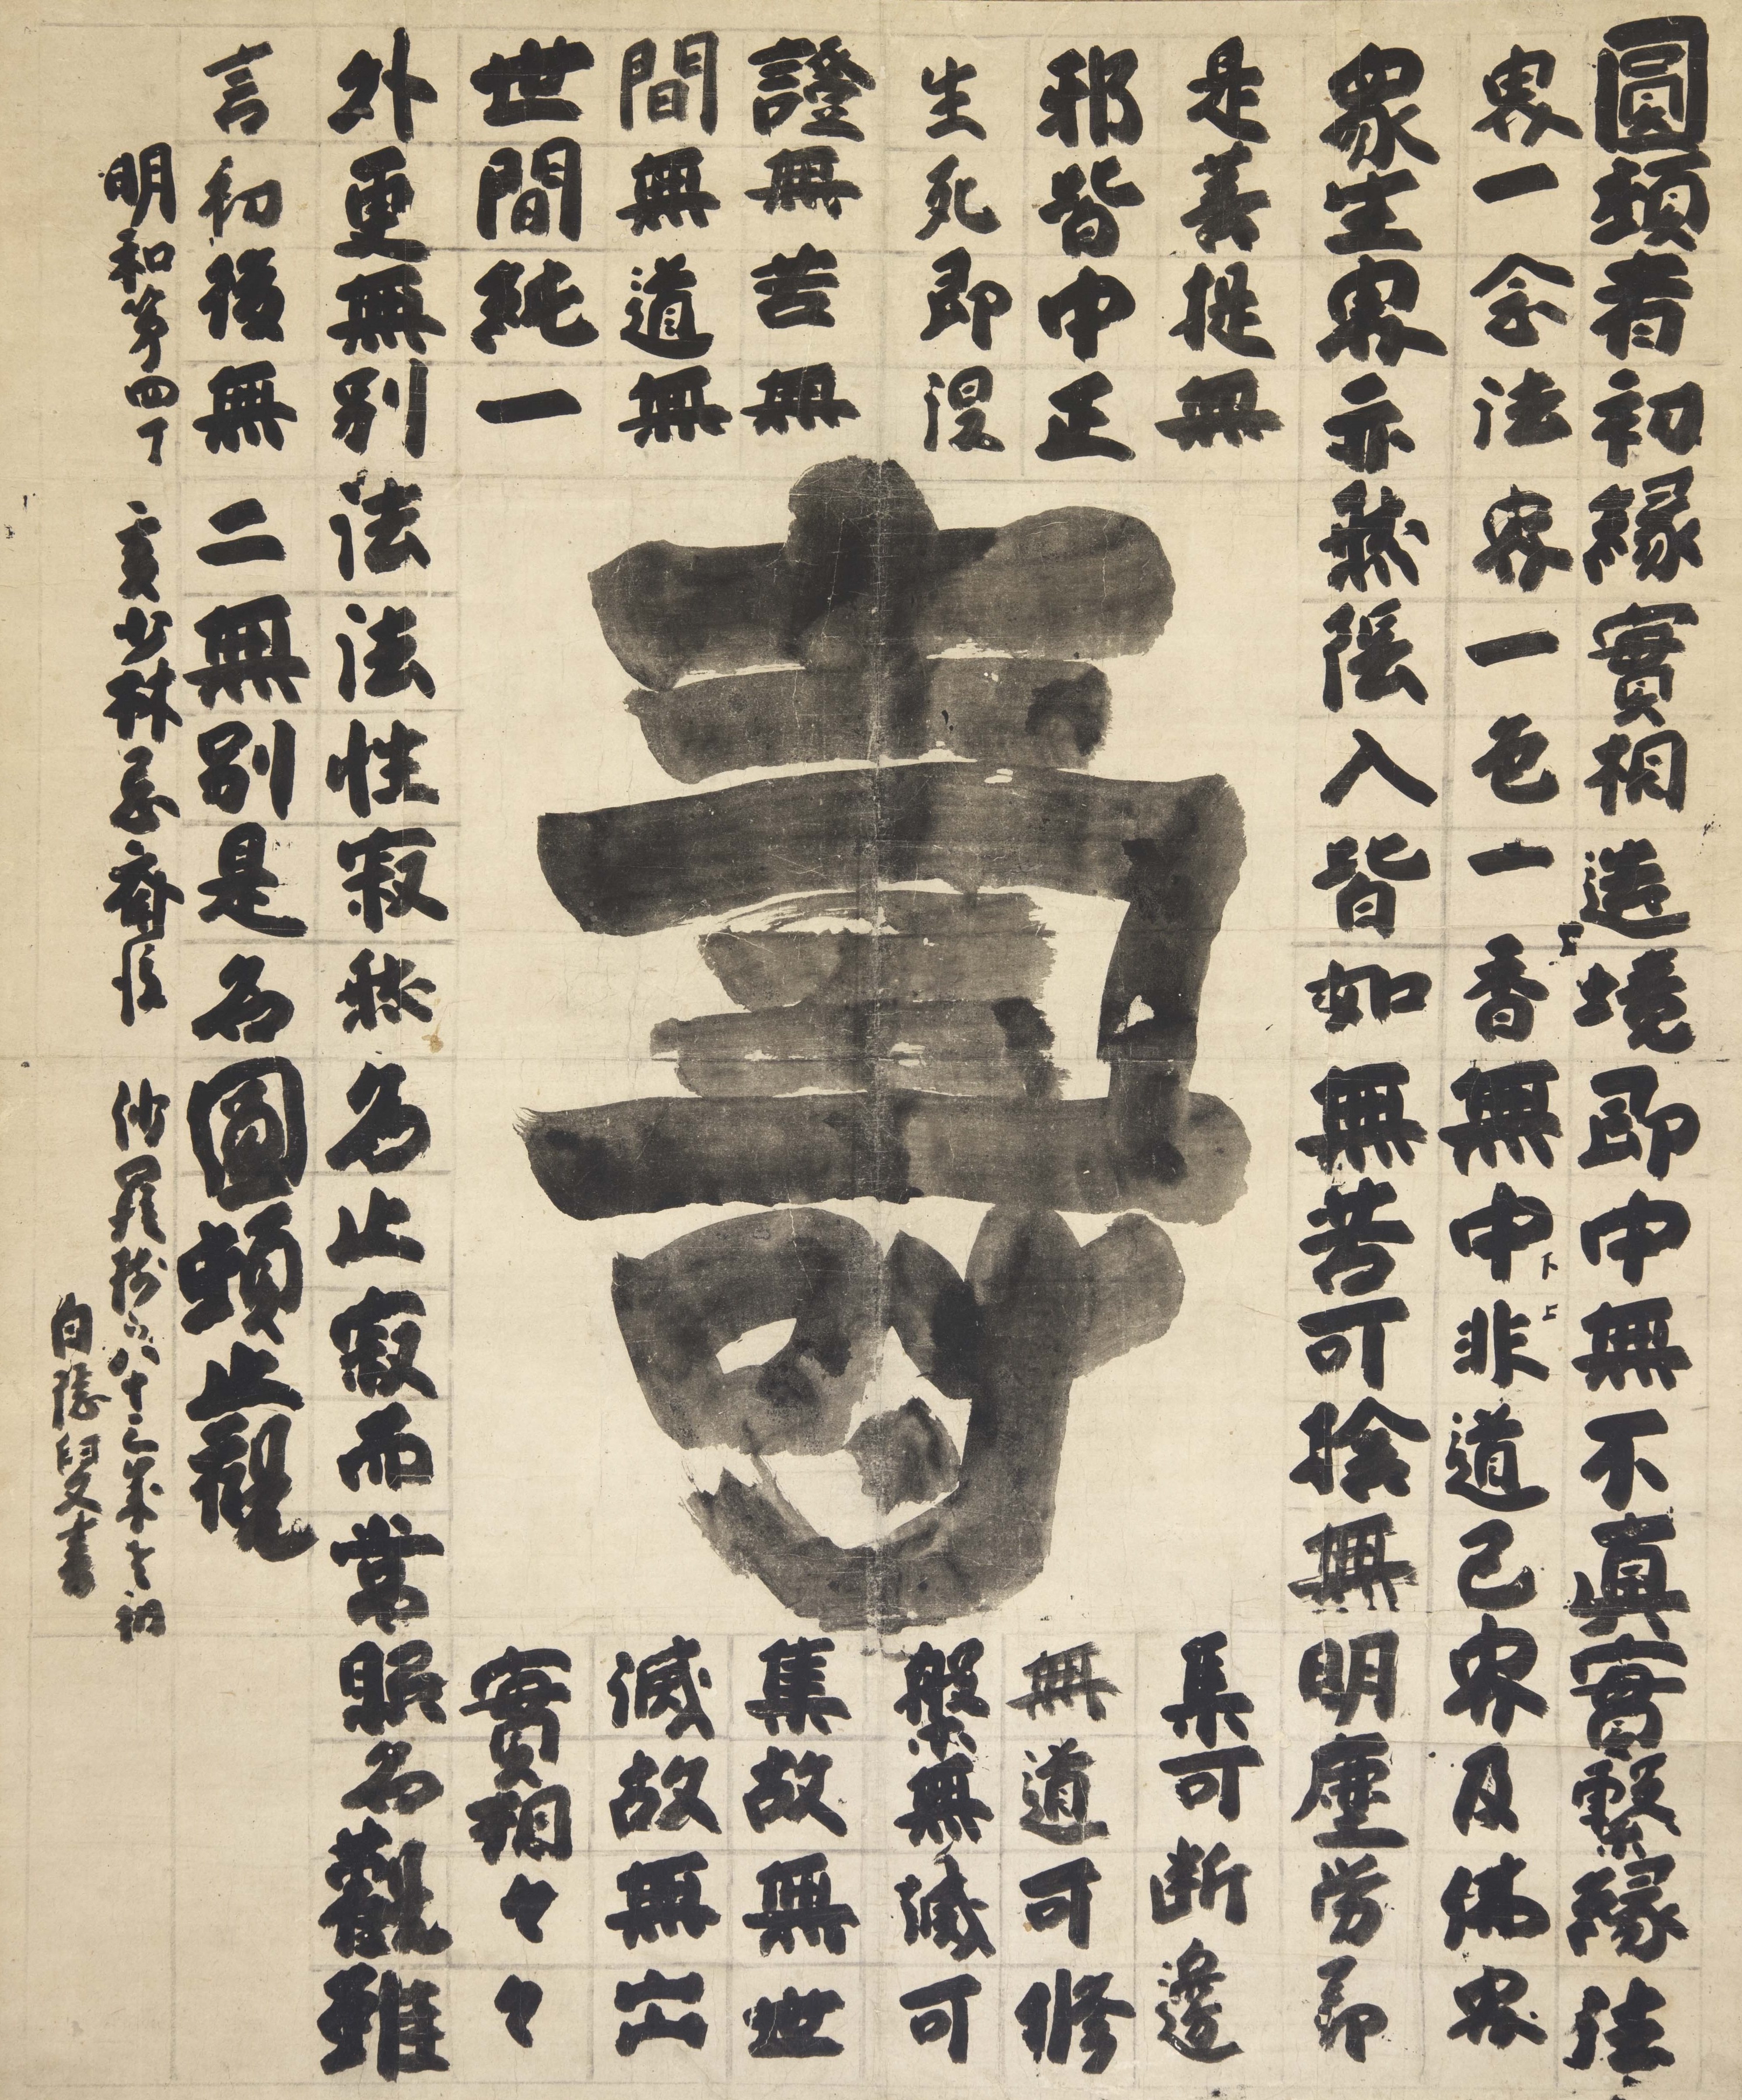 圓頓者初縁實相造境即中無不真實繫縁法
界一念法界一色一香無中非道己界及佛界
下
上
衆生界亦然陰入皆如無苦可捨無明塵労即
是菩提無
集可断邊
邪皆中正
無道可修
生死即涅
槃無滅可
證無苦無
集故無世
間無道無
滅故無出
世間純一
實相々々
外更無別法法性寂然名止寂而常照名觀雖
言初後無二無別是名圓頓止觀
壽
明和第四丁亥少林忌齋後 沙羅樹下八十三歳老衲
白隠叟書